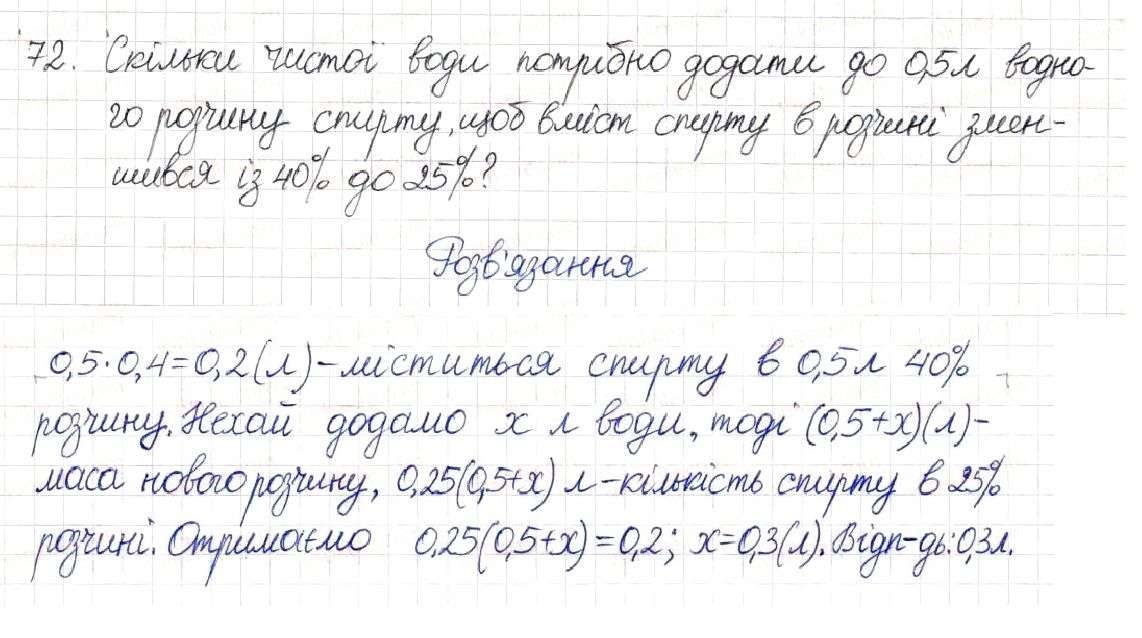 72. Скільки чистої води потрібно додати до 0,5л водно-
го розчину спирту, щоб вміст спирту в розчині змен-
шився із 40% до 25%?
Розв'язання
0,5·0,4=0,2(л)-міститься спирту в 0,5л 40%
розчину. Нехай додамо х л води, тоді (0,5+х)(л)-
маса нового розчину, 0,25(0,5+х) л-кількість спирту в 25%
розчині. Отримаємо 0,25(0,5+х)=0,2; х=0,3(л). Відп-дь: 0,3л.